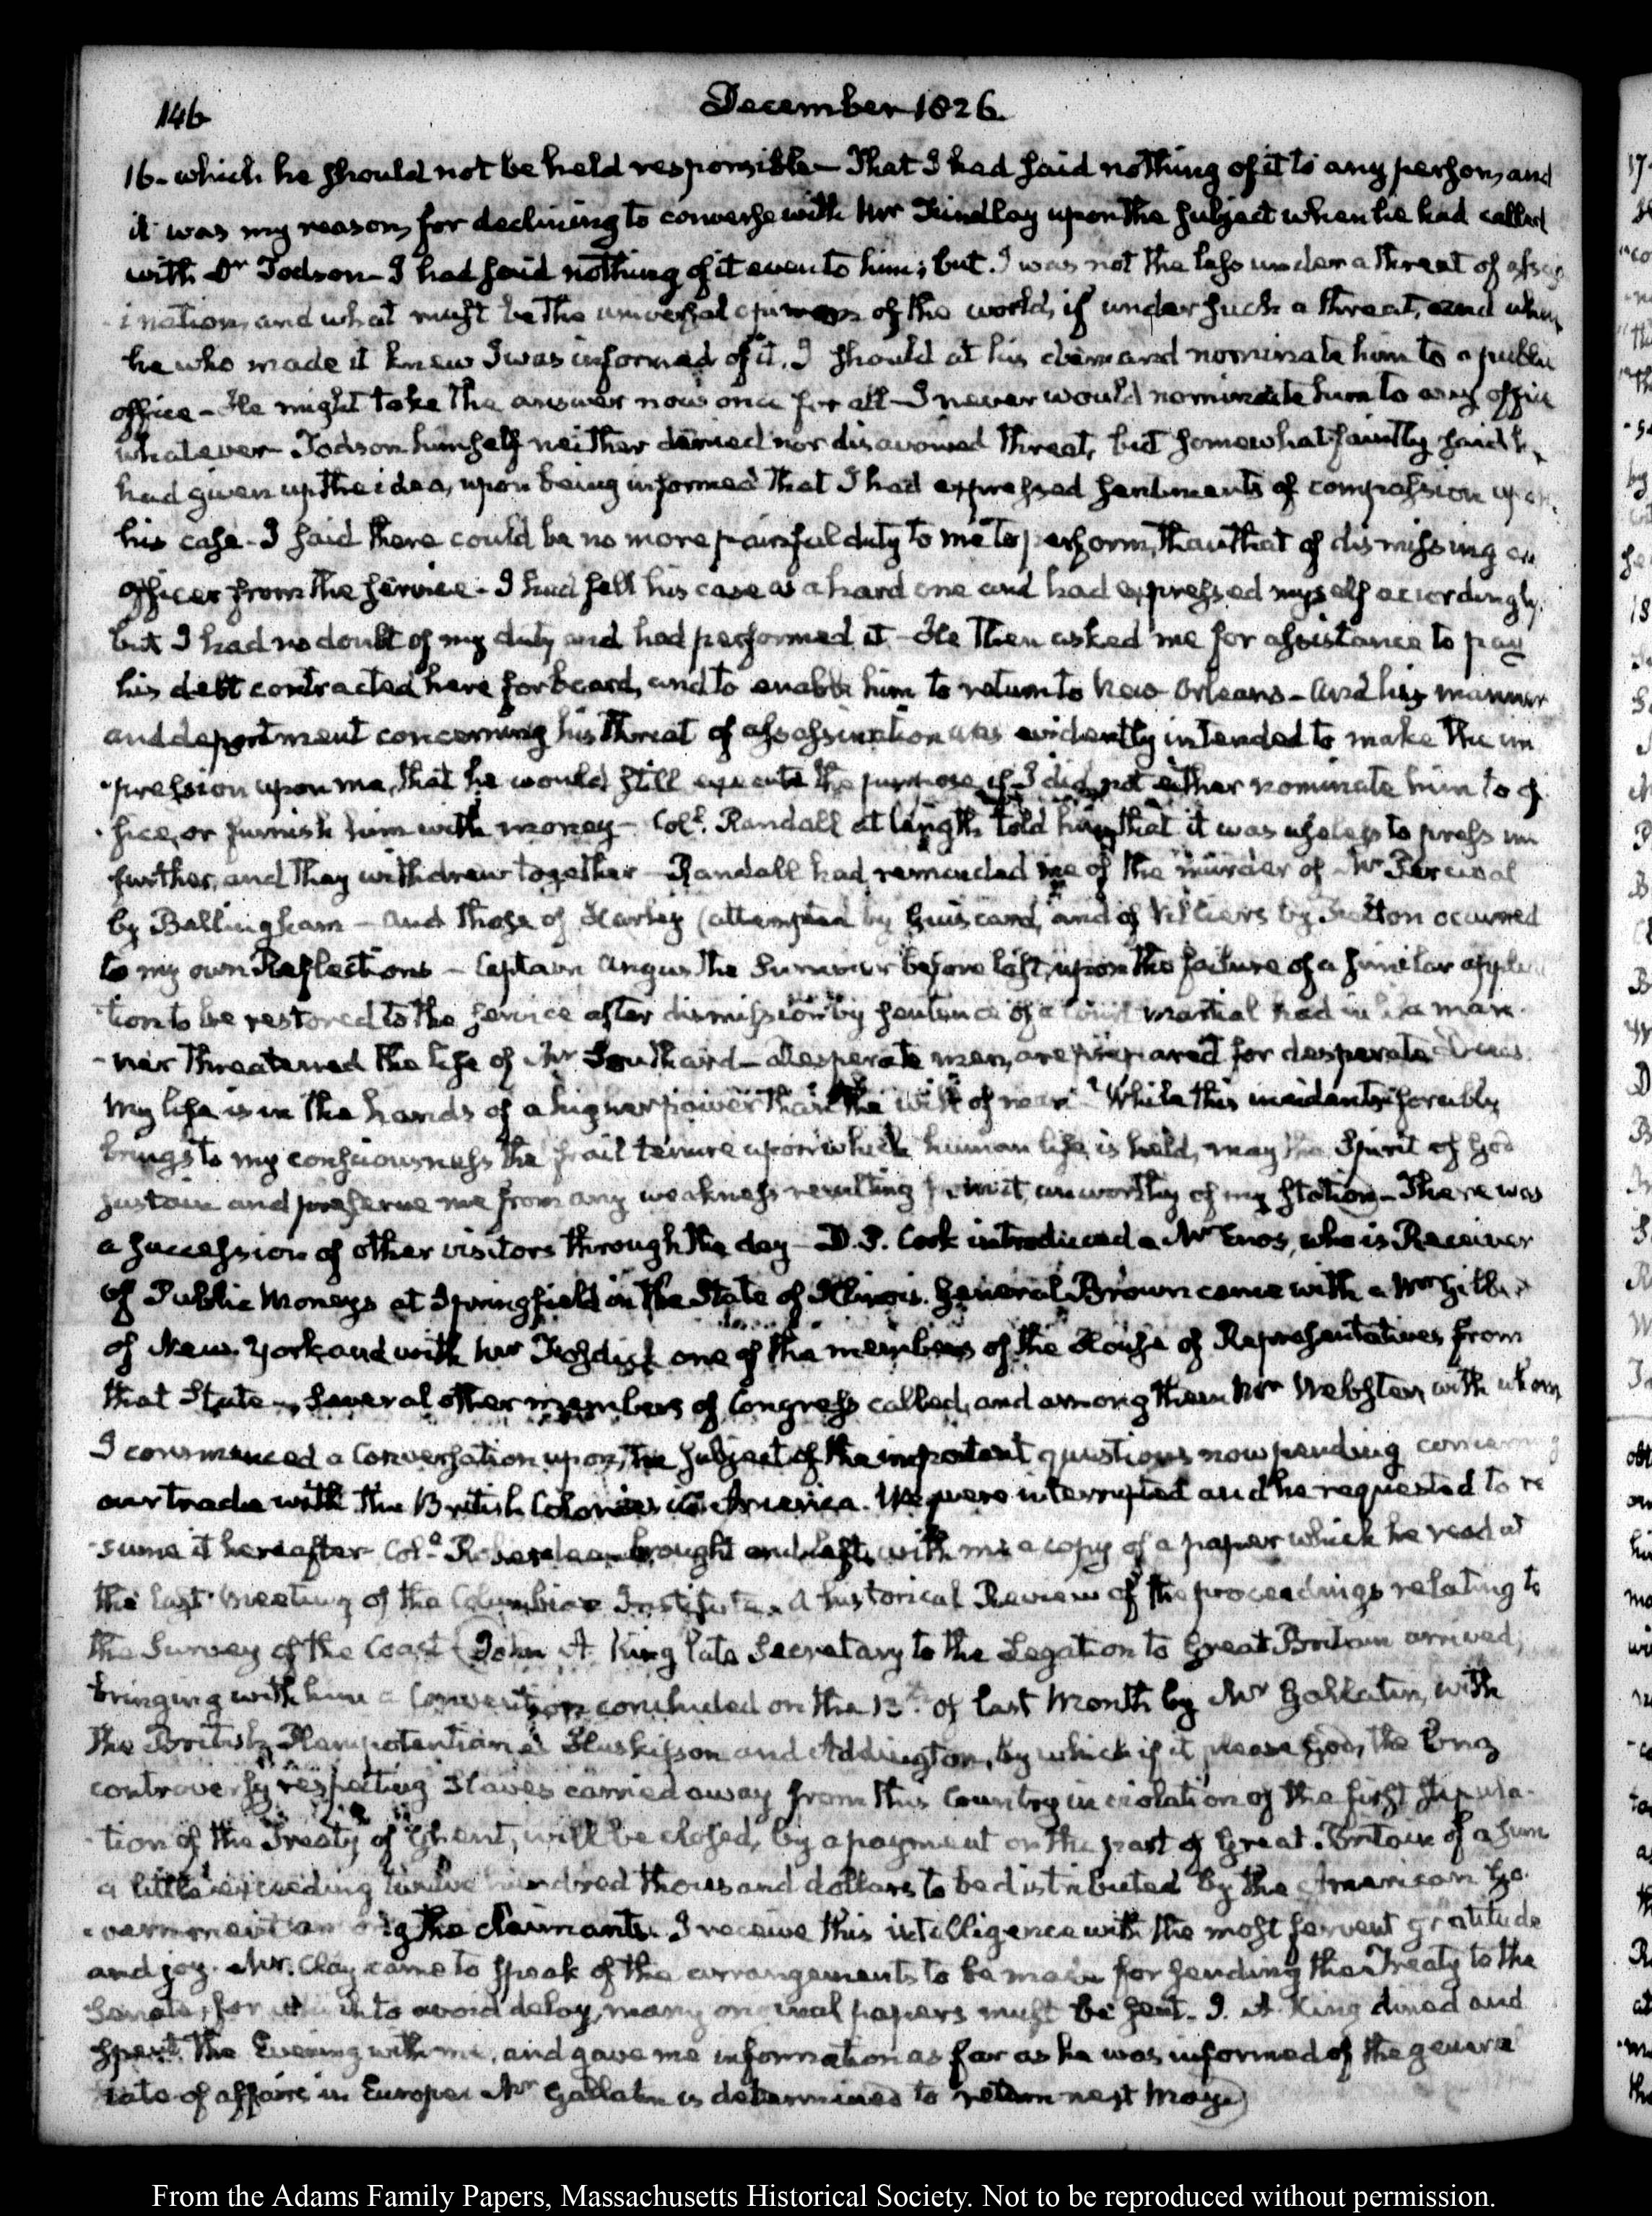 146
December 1826.
16. which he should not be held responsible — That I had said nothing of it to any person, and
it was my reason for declining to converse with Mr Findlay upon the subject when he had called
with Dr Todson — I had said nothing of it even to him; but I was not the less under a threat of assas-
ination, and what must be the universal opinion of the world, if under such a threat, and when
he who made it knew I was informed of it, I should at his demand nominate him to a public
office — He might take the answer now once for all — I never would nominate him to any office
whatever — Todson himself neither denied nor disavowed threat, but somewhat faintly said he
had given up the idea, upon being informed that I had expressed sentiments of compassion upon
his case — I said there could be no more painful duty to me to perform, than that of dismissing an
officer from the service — I had felt his case as a hard one and had expressed myself accordingly;
but I had no doubt of my duty and had performed it — He then asked me for assistance to pay
his debt contracted here for board, and to enable him to return to New Orleans — And his manner
and deportment concerning his threat of assassination was evidently intended to make the im
-pression upon me, that he would still execute the purpose, if I did not either nominate him to of
-fice, or furnish him with money — Coll. Randall at length told him that it was useless to press me
further, and they withdrew together — Randall had reminded me of the murder of Mr Perceval
by Bellingham — and those of Harley (attempted by Guiscard, and of Villiers by Felton occurred
to my own Reflections — Captain Angus the Summer before last, upon the failure of a similar applica
-tion to be restored to the service after dismission by sentence of a Court Martial had in like man-
-ner threatened the life of Mr Southard — desperate men, are prepared for desperate deeds.
My life is in the hands of a higher power than the will of man — While this incident forcibly
brings to my consciousness the frail tenure upon which human life, is held, may the Spirit of God
sustain and preserve me from any weakness resulting from it, unworthy of my station — There was
a succession of other visitors through the day — D. P. Cook introduced a Mr Enos, who is Receiver
of Public Moneys at Springfield in the State of Illinois. General Brown came with a Mr
of New-York, and with Mr Fosdick one of the members of the House of Representatives from
that State — Several other members of Congress called, and among them Mr Webster, with whom
I commenced a Conversation upon the subject of the important questions now pending concerning
our trade with the British Colonies in America. We were interrupted and he requested to re
-sume it hereafter — Coll. Roberdeau brought and left, with me a copy of a paper which he read at
the last meeting of the Columbian Institute. A historical Review of the proceedings relating to
the Survey of the Coast (John A. King late Secretary to the Legation to Great Britain arrived,
bringing with him a Convention concluded on the 13th. of last Month by Mr Gallatin, with
the British Plenipotentiaries Huskisson and Addington, by which if it please God, the long
controversy respecting Slaves carried away from this Country in violation of the first stipula-
-tion of the Treaty of Ghent, will be closed, by a payment on the part of Great-Britain of a sum
a little exceeding twelve hundred thousand dollars to be distributed by the American Go-
-vernment among the claimants. I receive this intelligence with the most fervent gratitude
and joy. Mr. Clay came to speak of the arrangements to be made for sending the Treaty to the
Senate, for with it to avoid delay, many original papers must be sent. J. A. King dined and
spent the Evening with me, and gave me information as far as he was informed of the general
state of affairs in Europe. Mr Gallatin is determined to return next May.)
From the Adams Family Papers, Massachusetts Historical Society. Not to be reproduced without permission.